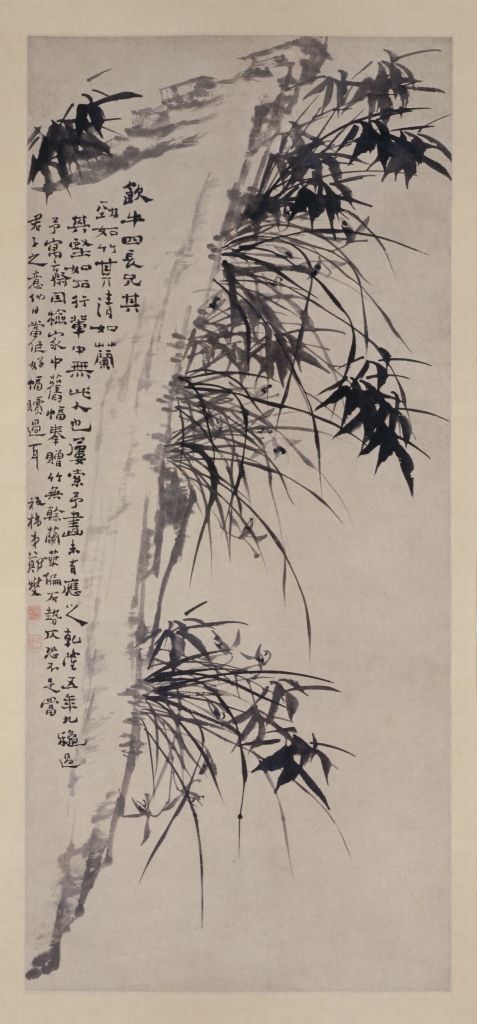 歙牛四長兄其
勁如竹其清如蘭
其堅如石行輩中無此人也屢索予畫未有應之乾隆五年九秋過
予寓齋因檢家中舊幅奉贈竹無餘蘭葉偏石勢仄恐不足當
君子之意他日當作好幅贖過耳 板橋弟鄭燮